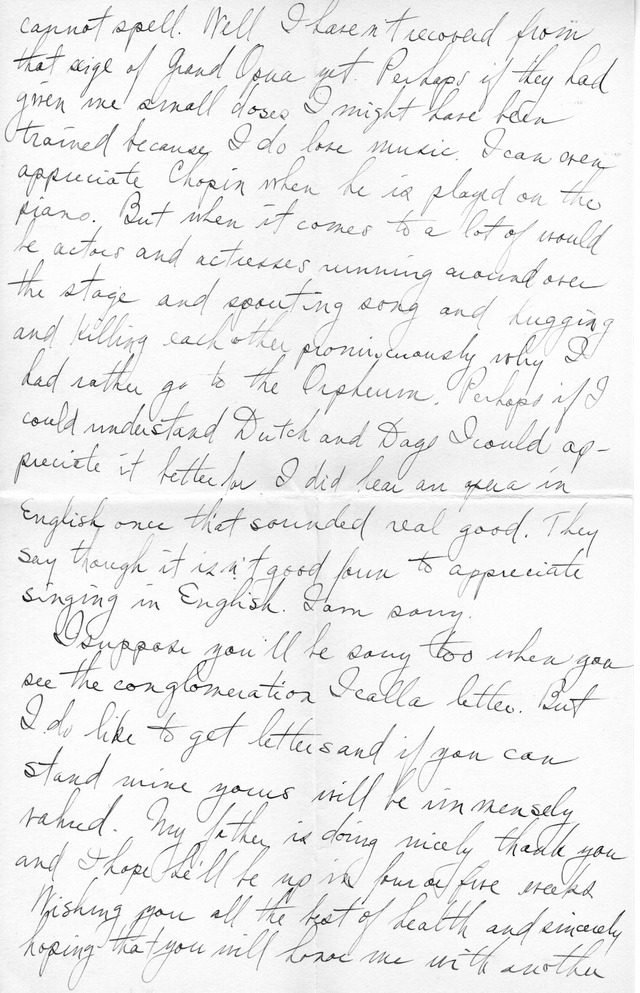 cannot spell. Well I haven't recovered from
that seige of Grand Opera yet. Perhaps if they had
given me small doses I might have been
trained because I do love music. I can even
appreciate Chopin when he is played on the
piano. But when it comes to a lot of would
be actors and actresses running around over
the stage and spouting song and hugging
and killing each other promiscuously why I
had rather go to the Orpheum. Perhaps if I
could understand Dutch and Dago I could ap-
preciate it better for I did hear an opera in
English once that sounded real good. They
say though it isn't good form to appreciate
singing in English. I am sorry.
I suppose you'll be sorry too when you
see the conglomeration I call a letter. But
I do like to get letters and if you can
stand mine yours will be immensely
valued. My father is doing nicely thank you
and I hope he'll be up in four or five weeks
Wishing you all the best of health and sincerely
hoping that you will honor me with another